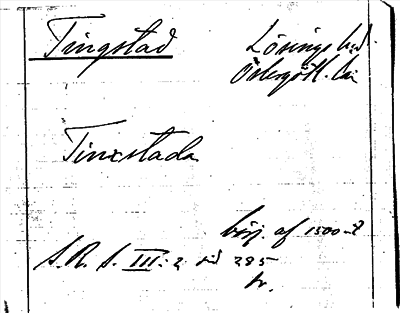 Tingstad
Lösings hd.
Östergötl. län
Tinxstada
börj. af 1500-t
S.R.S. III:2 sid 285